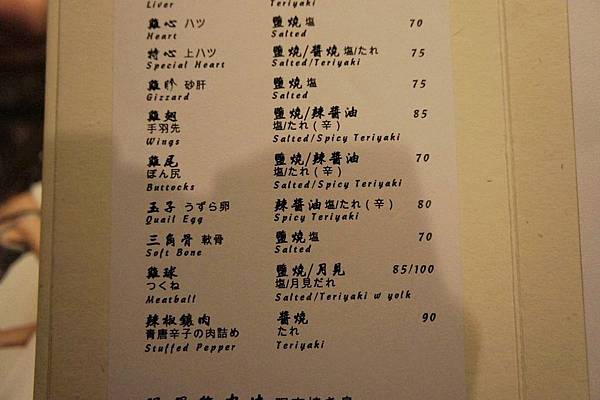 Liver Teriyaki
雞心 ハツ 鹽燒 塩 70
Heart Salted
特心 上ハツ 鹽燒/醬燒 塩/たれ 75
Special Heart Salted/Teriyaki
雞胗 砂肝 鹽燒 塩 75
Gizzard Salted
雞翅 鹽燒/辣醬油 85
手羽先 塩/たれ（辛）
Wings Salted/Spicy Teriyaki
雞尾 鹽燒/辣醬油 70
ぼん尻 塩/たれ（辛）
Buttocks Salted/Spicy Teriyaki
玉子 うずら卵 辣醬油 塩/たれ（辛） 80
Quail Egg Spicy Teriyaki
三角骨 軟骨 鹽燒 塩 70
Soft Bone Salted
雞球 鹽燒/月見 85/100
つくね 塩/月見だれ
Meatball Salted/Teriyaki w yolk
辣椒鑲肉 醬燒 90
青唐辛子の肉詰め たれ
Stuffed Pepper Teriyaki